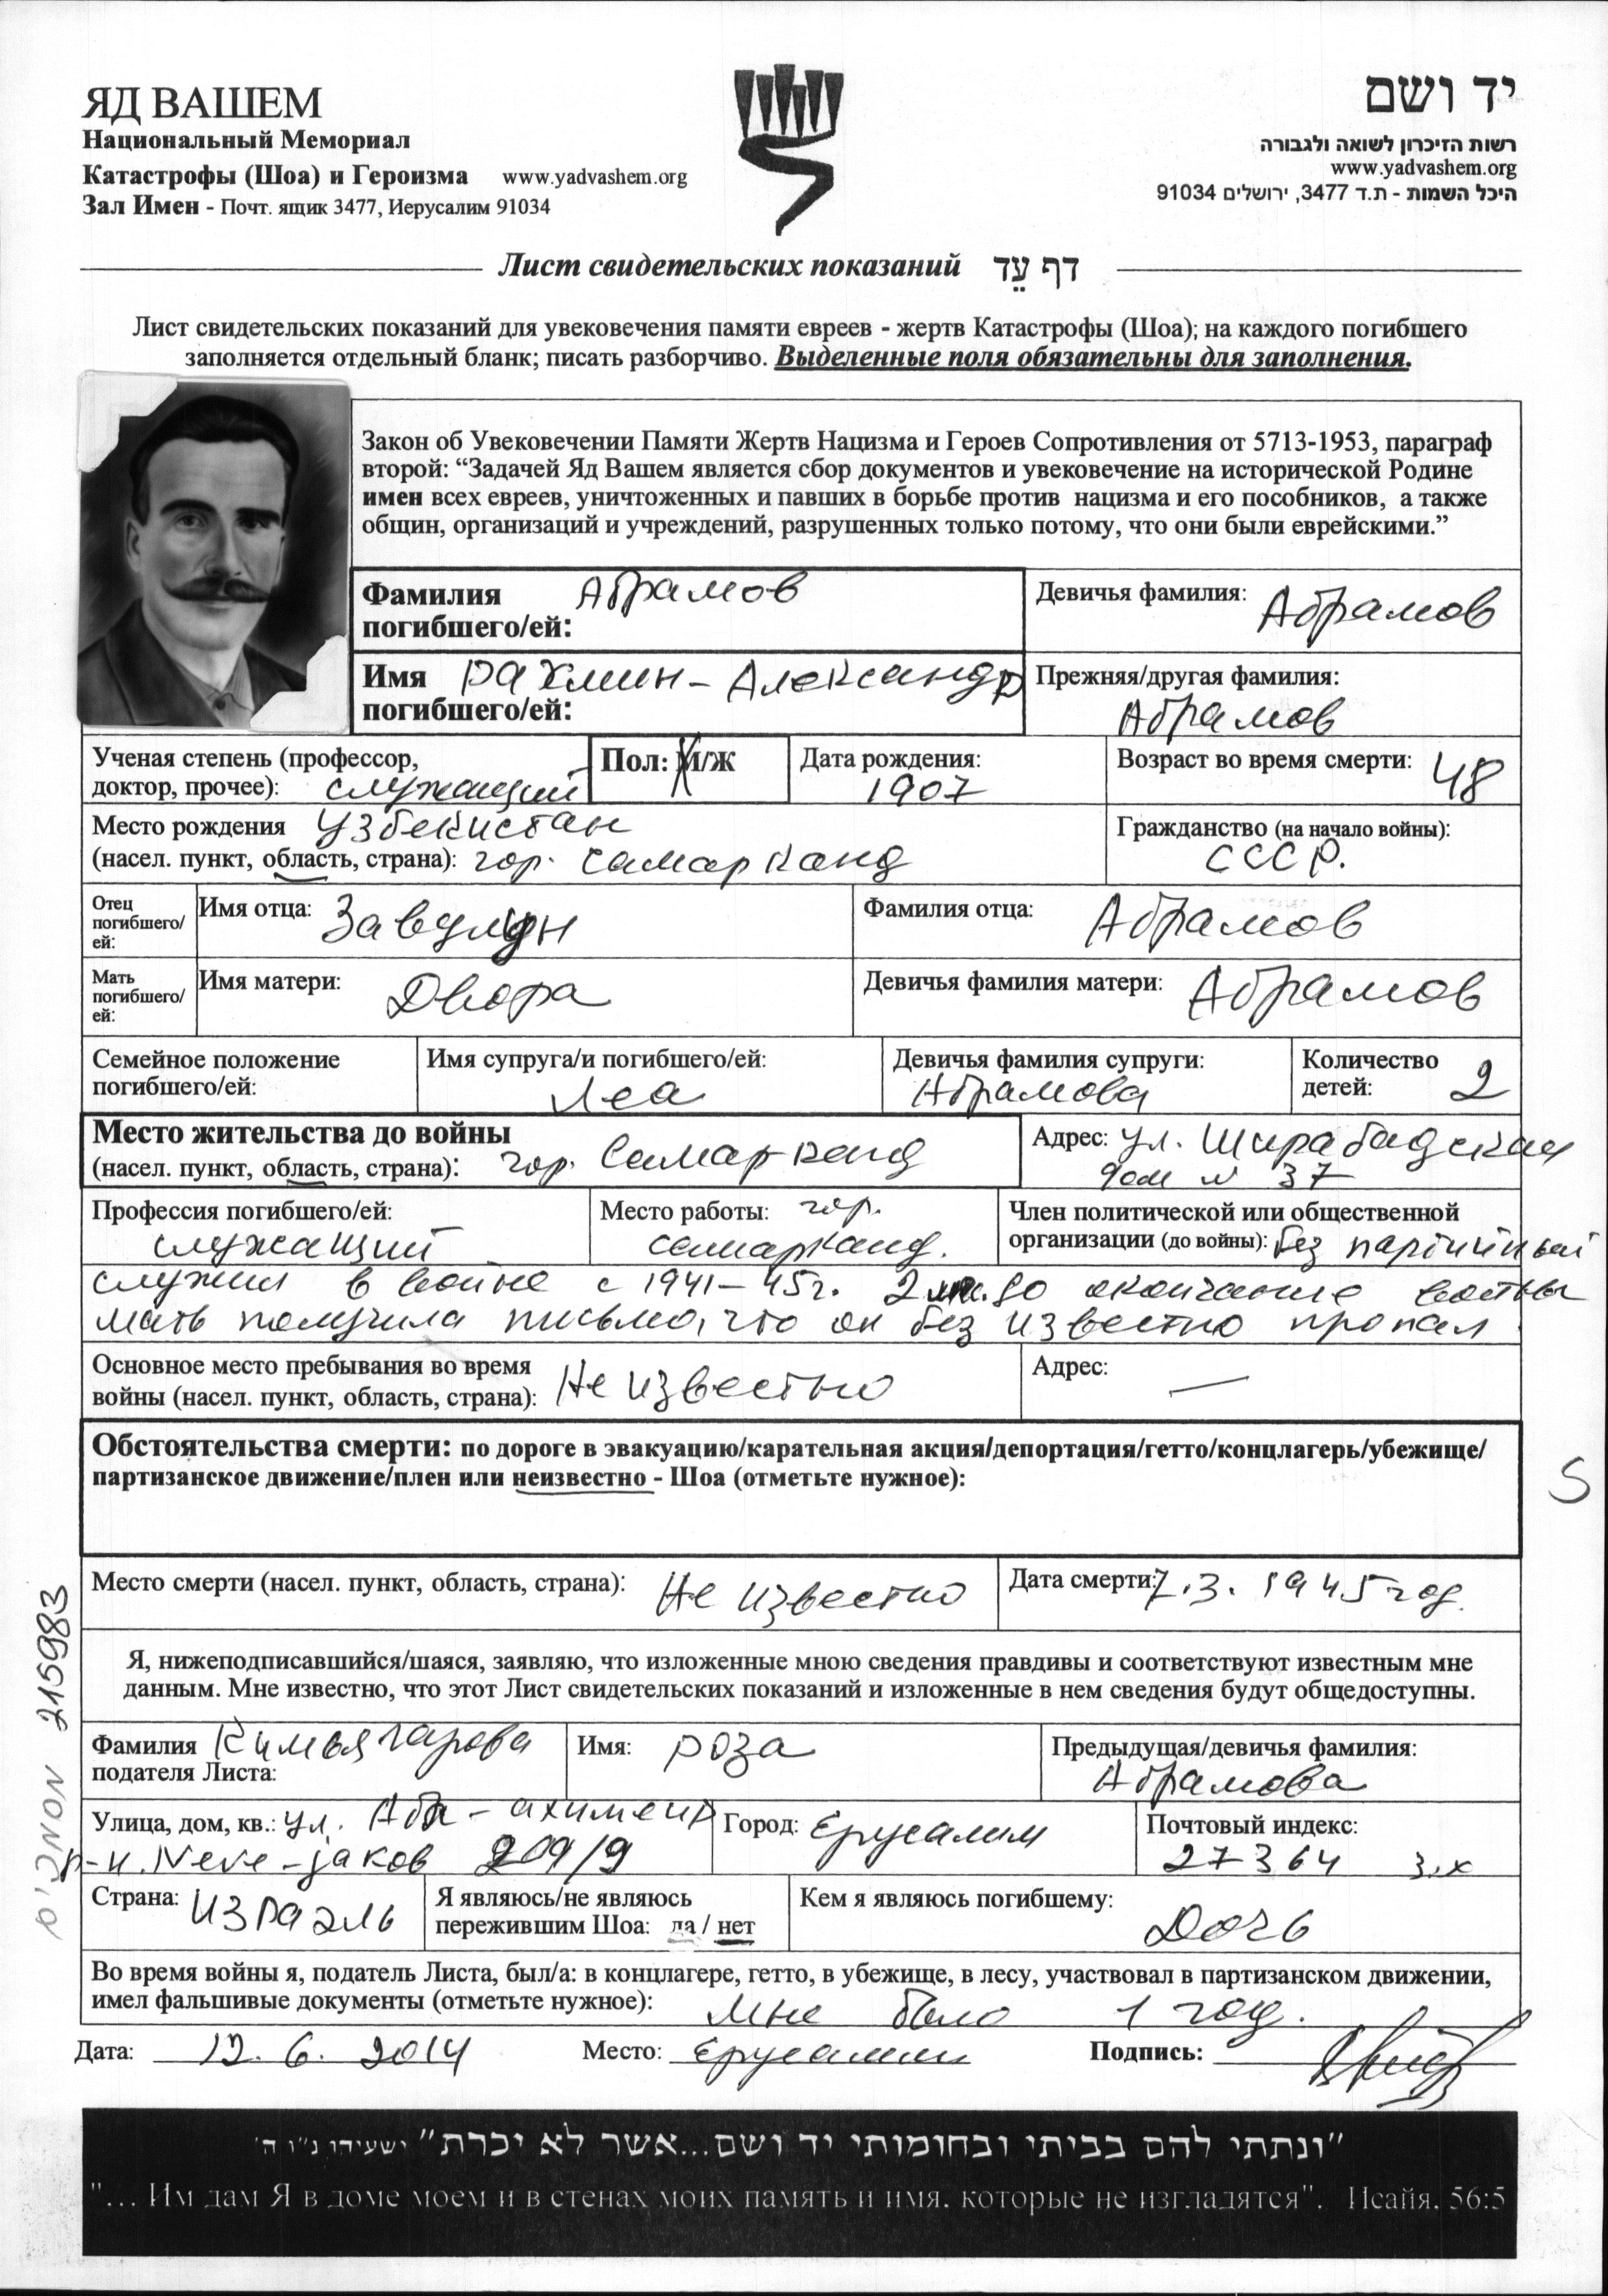 ЯД ВАШЕМ
Национальный Мемориал
Катастрофы (Шоа) и Героизма www.yadvashem.org
Зал Имен - Почт. ящик 3477, Иерусалим 91034
יד ושם
רשות הזיכרון לשואה ולגבורה
www.yadvashem.org
היכל השמות - ת.ד 3477, ירושלים 91034
Лист свидетельских показаний דף עֵד
Лист свидетельских показаний для увековечения памяти евреев - жертв Катастрофы (Шоа); на каждого погибшего
заполняется отдельный бланк; писать разборчиво. Выделенные поля обязательны для заполнения.
Закон об Увековечении Памяти Жертв Нацизма и Героев Сопротивления от 5713-1953, параграф
второй: “Задачей Яд Вашем является сбор документов и увековечение на исторической Родине
имен всех евреев, уничтоженных и павших в борьбе против нацизма и его пособников, а также
общин, организаций и учреждений, разрушенных только потому, что они были еврейскими.”
Фамилия погибшего/ей: Абрамов
Девичья фамилия: Абрамов
Имя погибшего/ей: Рахмин - Александр
Прежняя/другая фамилия: Абрамов
Ученая степень (профессор,
доктор, прочее): служащий
Пол: М/Ж
Дата рождения: 1907
Возраст во время смерти: 48
Место рождения Узбекистан
(насел. пункт, область, страна): гор. Самарканд
Гражданство (на начало войны): СССР.
Отец погибшего/ей:
Имя отца: Завулун
Фамилия отца: Абрамов
Мать погибшего/ей:
Имя матери: Двора
Девичья фамилия матери: Абрамов
Семейное положение
погибшего/ей:
Имя супруга/и погибшего/ей: Леа
Девичья фамилия супруги: Абрамова
Количество детей: 2
Место жительства до войны
(насел. пункт, область, страна): гор. Самарканд
Адрес: ул. Ширабадская
дом № 37
Профессия погибшего/ей: служащий
Место работы: гор. Самарканд.
Член политической или общественной
организации (до войны): без партийный
служил в войне с 1941-45г. 2 до окончание войны
мать получила письмо, что он без известно пропал.
Основное место пребывания во время
войны (насел. пункт, область, страна): Не известно
Адрес: —
Обстоятельства смерти: по дороге в эвакуацию/карательная акция/депортация/гетто/концлагерь/убежище/
партизанское движение/плен или неизвестно - Шоа (отметьте нужное):
S
Место смерти (насел. пункт, область, страна): Не известно
Дата смерти: 7.3.1945 год.
Я, нижеподписавшийся/шаяся, заявляю, что изложенные мною сведения правдивы и соответствуют известным мне
данным. Мне известно, что этот Лист свидетельских показаний и изложенные в нем сведения будут общедоступны.
Фамилия подателя Листа: Кимьягарова
Имя: Роза
Предыдущая/девичья фамилия: Абрамова
Улица, дом, кв.: ул. Аба - ахимеир
р-н. Neve-jаков 209/9
Город: Ерусалим
Почтовый индекс: 27364
Страна: Израэль
Я являюсь/не являюсь
пережившим Шоа: да / нет
Кем я являюсь погибшему: Дочь
Во время войны я, податель Листа, был/а: в концлагере, гетто, в убежище, в лесу, участвовал в партизанском движении,
имел фальшивые документы (отметьте нужное): Мне было 1 год.
Дата: 12.6.2014 Место: Ерусалим Подпись:
215983
"ונתתי להם בביתי ובחומותי יד ושם...אשר לא יכרת" ישעיהו נ"ו ה'
"... Им дам Я в доме моем и в стенах моих память и имя. которые не изгладятся". Исайя. 56:5